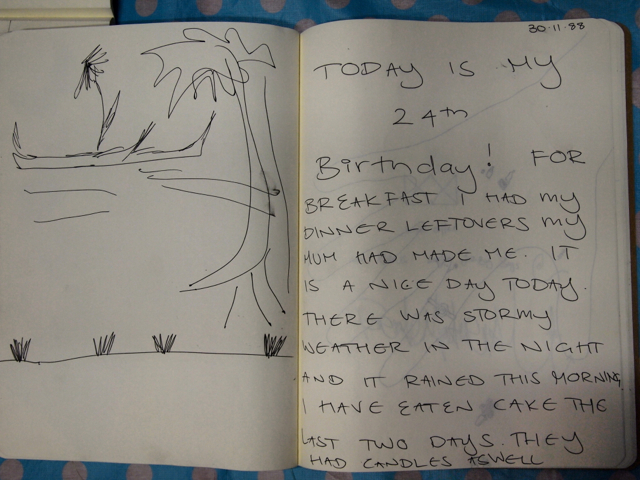 30·11·88
TODAY IS MY
24th
Birthday! FOR
BREAKFAST I HAD my
DINNER LEFTOVERS my
MUM HAD MADE ME. IT
IS A NICE DAY TODAY.
THERE WAS STORMY
WEATHER IN THE NIGHT
AND IT RAINED THIS MORNING,
I HAVE EATEN CAKE THE
LAST TWO DAYS. THEY
HAD CANDLES ASWELL